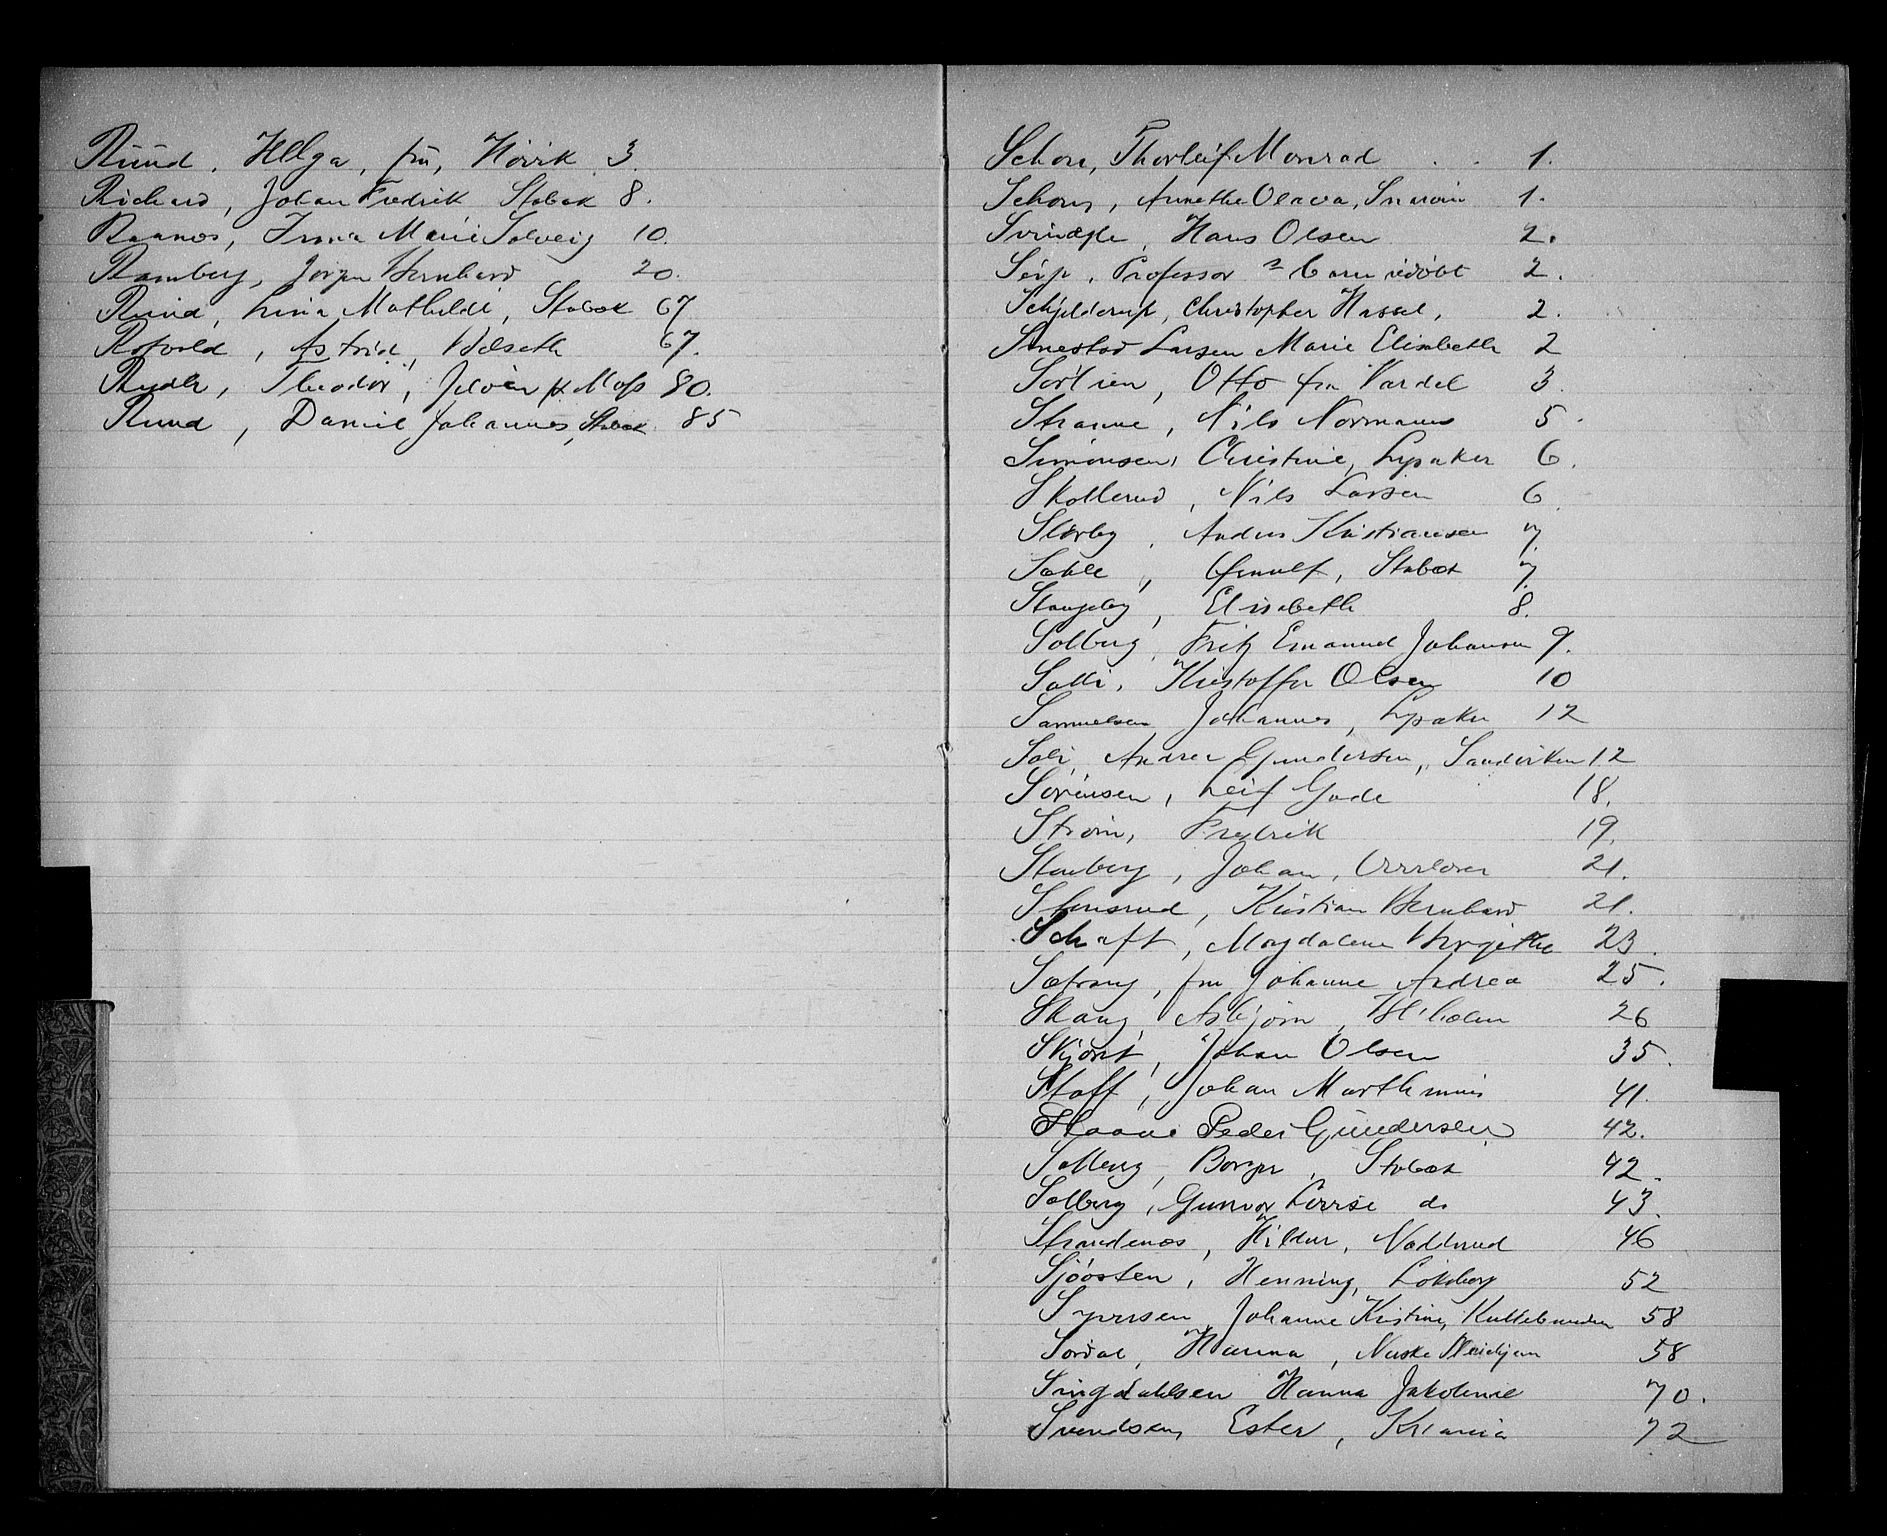 Ruud, Helga, fru, Høvik 3.
Richard, Johan Fredrik Stabæk 8.
Raanes, Irma Marie Solveig 10.
Ramberg, Jørgen Bernhard 20.
Ruud, Lina Mathilde, Stabæk 67
Rotvold, Astrid, 67.
Rydh, Theodor, pr. Moss 80.
Ruud, Daniel Johannes, Stabæk 85
Schou, Thorleif Monrad 1.
Schou, Annethe Olava, Snarøen 1.
Svinægle, Hans Olsen 2.
Seip, Professor 2.
Schjelderup, Christopher Hassel, 2.
Smestad Larsen Marie Elisabeth 2
Sørlien, Otto fra Vardal 3.
Stranne, Nils Normann 5.
Simonsen, Christine, Lysaker 6.
Skollerud, Nils Larsen 6
Slorby, Anders Kristiansen 7.
Sæhle, Ørnulf, Stabæk 7.
Stangeby, Elisabeth 8.
Solberg, Fritz Emanuel Johansen 9.
Solli, Kristoffer Olsen 10
Samuelsen, Johannes, Lysaker 12
Soli, Andrea Gundersen, Sandviken 12
Sørensen, Leif Gade 18.
Strøm, Fredrik 19.
Stenberg, Johan, 21.
Stensrud, Kristian Bernhard 21.
Schaft, Magdalene Birgithe 23.
Sætrang, fru Johanne Andrea 25.
Skaug, Asbjørn, 26
Skjønt, Johan Olsen 35.
Staff, Johan Marthinius 41.
Staavi Peder Gundersen 42.
Solberg, Borger, Stabæk 42.
Solberg, Gunvor Lovise do 43.
Strandenæs, Hildur, Nadderud 46
Sjøosten, Henning, Løkeberg 52
Syversen, Johanne Kristine, 58
Sørdal, Hanna, Neskollen 58
Singdahlsen Hanna Jakobine 70.
Svendsen, Ester, Kr.ania 72